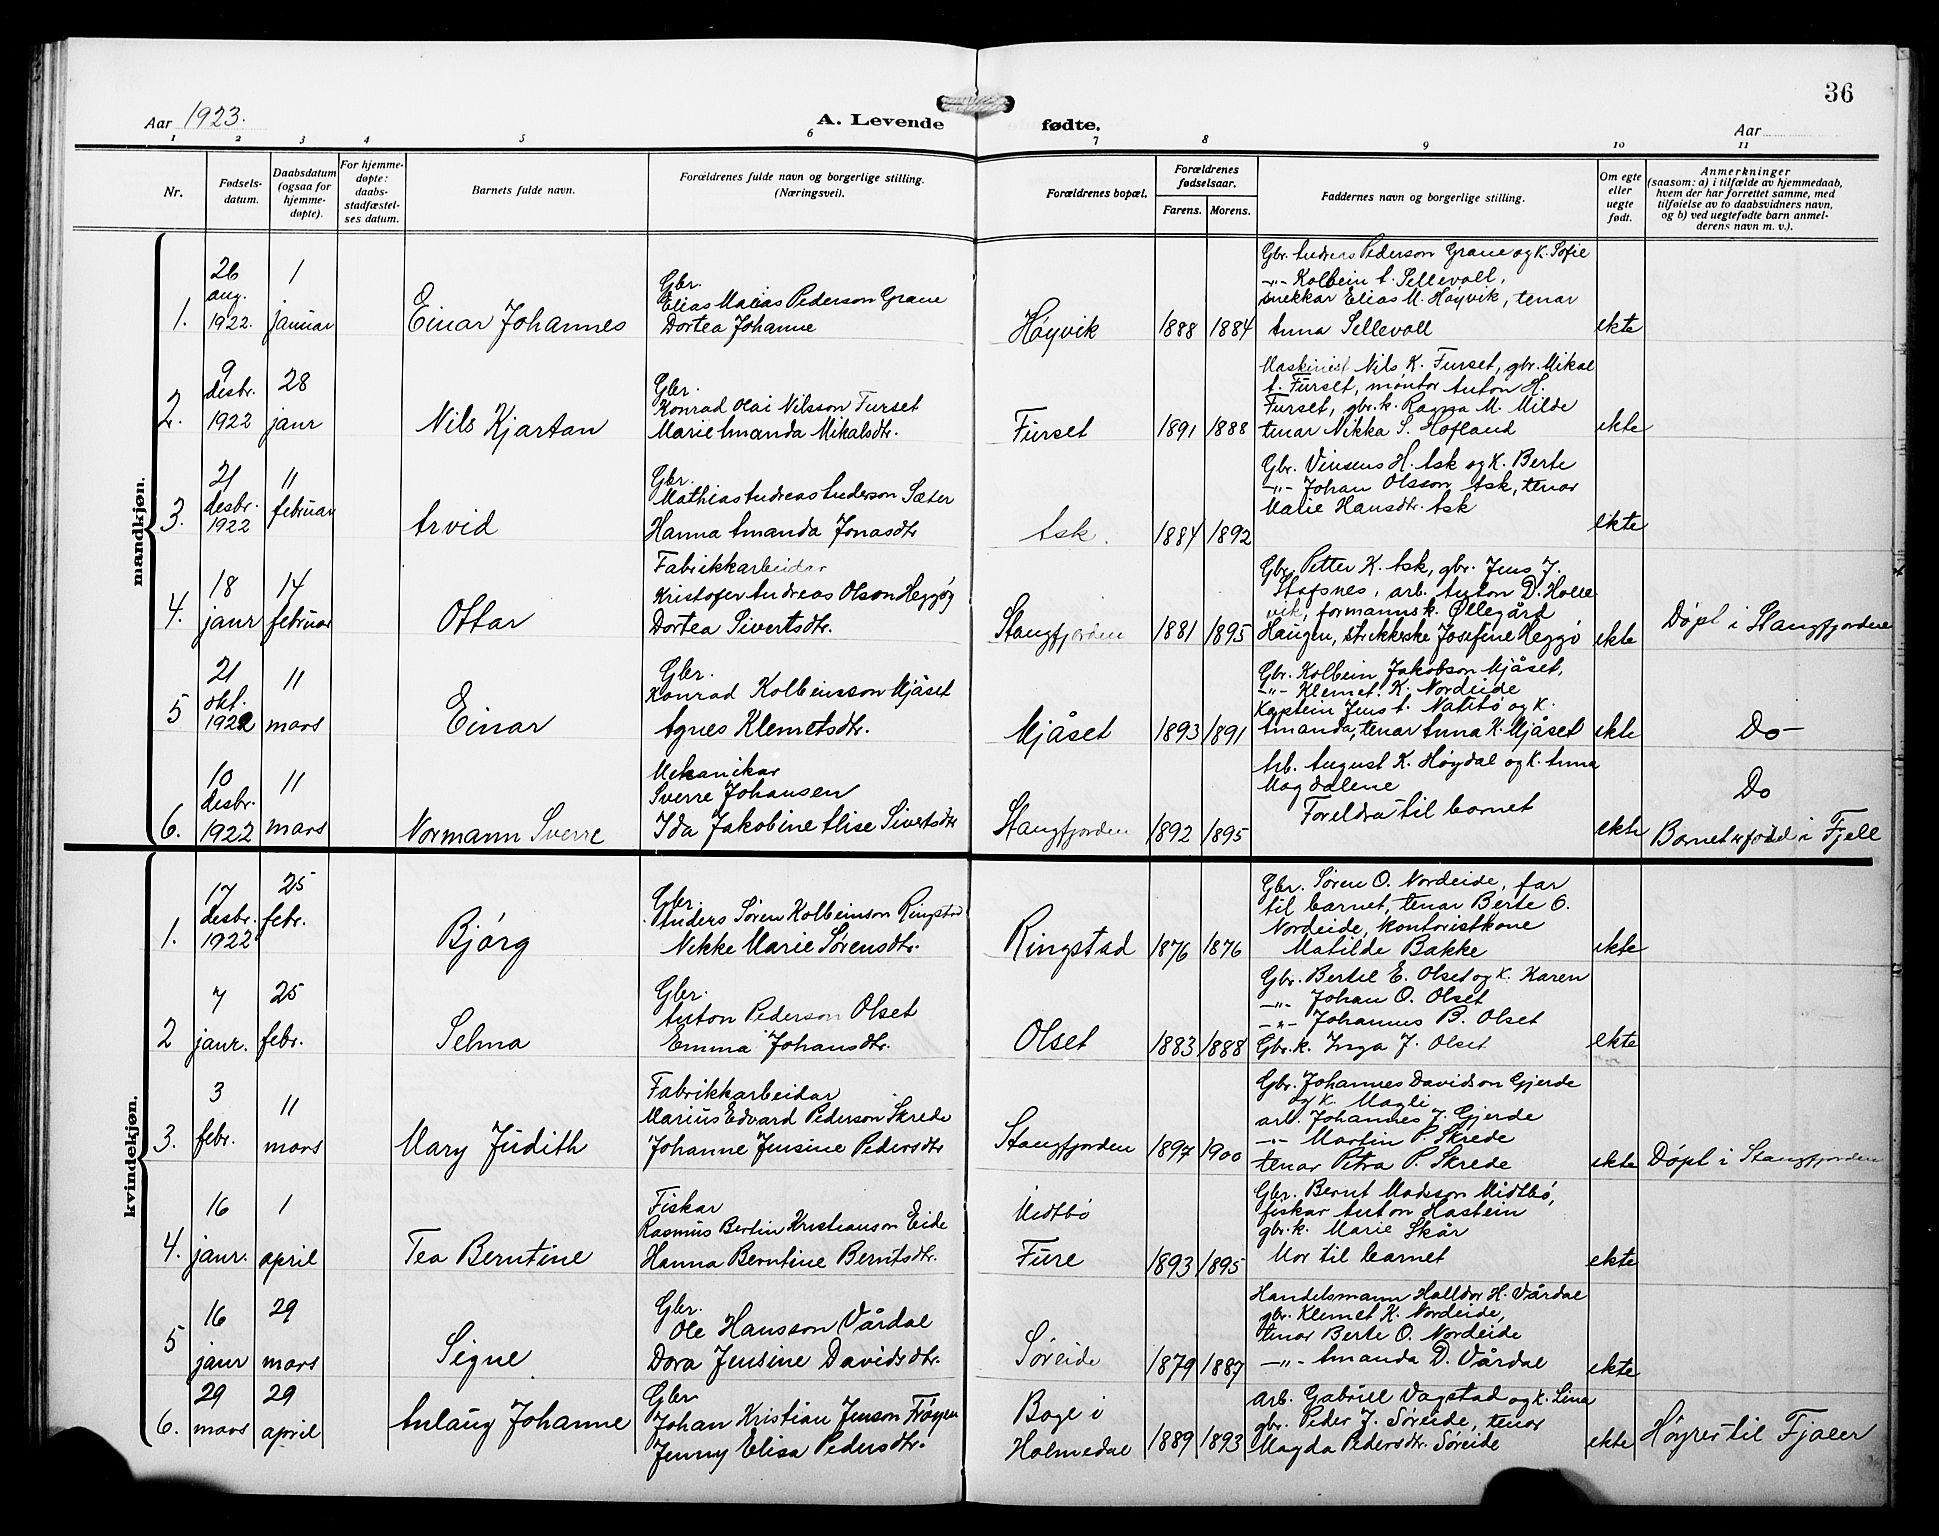 36
Aar 1923.
A. Levende fødte.
Aar
1 2 3 4 5 6 7 8 9 10 11
Nr.
Fødsels-
datum.
Daabsdatum
(ogsaa for
hjemme-
døpte).
For hjemme-
døpte:
daabs-
stadfæstel-
ses datum.
Barnets fulde navn.
Forældrenes fulde navn og borgerlige stilling.
(Næringsvei).
Forældrenes bopæl.
Forældrenes
fødselsaar.
Farens. Morens.
Faddernes navn og borgerlige stilling.
Om egte
eller
uegte
født.
Anmerkninger
(saasom: a) i tilfælde av hjemmedaab,
hvem der har forrettet samme, med
tilføielse av to daabsvidners navn,
og b) ved uegtefødte barn anmel-
derens navn m. v.).
mandkjøn.
1.
26
aug.
1922.
1
januar
Einar Johannes
Gbr.
Elias Matias Pederson Grane
Dortea Johanne
Høyvik
1888 1884
Gbr. Andreas Pederson Grane og k. Sofie
-"- Kolbein A. Sellevoll,
snekkar Elias M. Høyvik, tenar
Anna Sellevoll
ekte
2.
9
desbr.
1922
28
janr
Nils Kjartan
Gbr.
Konrad Olai Nilsson Furset
Marie Amanda Mikalsdtr.
Furset
1891 1888
Maskinist Nils K. Furset, gbr. Mikal
A. Furset, montør Anton H.
Furset, gbr.k. Ragna M. Milde
tenar Nikka S. Hofland
ekte
3.
21
desbr.
1922
11
februar
Arvid
Gbr.
Mathias Andreas Anderson Sæter
Hanna Amanda Jonasdtr
Ask.
1884 1892
Gbr. Vinsens H. Ask og k. Berte
-"- Johan Olsson Ask, tenar
Marie Hansdtr. Ask
ekte
4.
18
janr
14
februar
Ottar
Fabrikkarbeidar
Kristofer Andreas Olson Heggøy
Dortea Sivertsdtr.
Stangfjorden
1881 1895
Gbr. Petter K. Ask, gbr. Jens J.
Stafsnes, arb. Anton D. Holle
vik, formannsk. Øllegård
Haugen, strikkerske Josefine Heggø
ekte
Døpt i Stangfjorden
5
21
okt.
1922
11
mars
Einar
Gbr.
Konrad Kolbeinsson Mjåset
Agnes Klemetsdtr.
Mjåset
1893 1891
Gbr. Kolbein Jakobson Mjåset,
-"- Klemet K. Nordeide
Kaptein Jens A. Natitø og k.
Amanda, tenar Anna K. Mjåset
ekte
Do
6.
10
desbr.
1922
11
mars
Normann Sverre
Mekanikar
Sverre Johansen
Ida Jakobine Alise Sivertsdtr
Stangfjorden
1892 1895
Arb. August K. Høydal og k. Anna
Magdalene
Foreldra til barnet
ekte
Do
Barnet er född i Fjell
kvindekjøn.
1.
17
desbr.
1922
25
febr.
Bjørg
Gbr.
Anders Søren Kolbeinson Ringstad
Nikke Marie Sørensdtr.
Ringstad
1876 1876
Gbr. Søren O. Nordeide, far
til barnet, tenar Berte O.
Nordeide, kontoristkone
Matilde Bakke
ekte
2
7
janr.
25
febr.
Selma
Gbr.
Anton Pederson Olset
Emma Johansdtr.
Olset
1883 1888
Gbr. Bertel E. Olset og k. Karen
-"- Johan O. Olset
-"- Johannes B. Olset
Gbr.k. Inga J. Olset
ekte
3.
3
febr.
11
mars
Mary Judith
Fabrikkarbeidar
Marius Edvard Pederson Skrede
Johanne Jensine Pedersdtr
Stangfjorden
1897 1900
Gbr. Johannes Davidson Gjerde
og k. Magli
arb. Johannes J. Gjerde
-"- Martin P. Skrede
tenar Petra P. Skrede
ekte
Døpt i Stangfjorden
4.
16
janr.
1
april
Tea Berntine
Fiskar
Rasmus Bertin Kristianson Eide
Hanna Berntine Berntsdtr.
Midtbø
Fure
1893 1895
Gbr. Bernt Madsson Midtbø,
fiskar Anton Hastein
gbr.k. Marie Skår
Mor til barnet
ekte
5
16
janr
29
mars
Signe
Gbr.
Ole Hansson Vårdal
Dora Jensine Davidsdtr.
Søreide
1879 1887
Handelsmann Halldor H. Vårdal
gbr. Klemet K. Nordeide,
tenar Berte O. Nordeide
-"- Amanda D. Vårdal
ekte
6.
29
mars
29
april
Anlaug Johanne
Gbr
Johan Kristian Jenson Frøyen
Jenny Elisa Pedersdtr.
Bage i
Holmedal
1889 1893
arb. Gabriel Vagstad og k. Lina
gbr. Peder J. Søreide, tenar
Magda Pedersdtr. Søreide
ekte
Høyrer til Fjaler